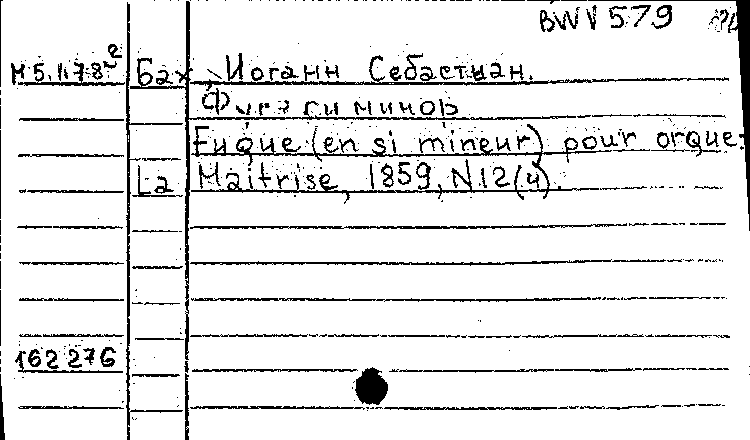 BWV 579
М 5.1178 Бах, Иоганн Себастиан.
Фуга си минор
Fugue (en si mineur) pour orgue:
La Maitrise, 1859, N12(4).
162 276